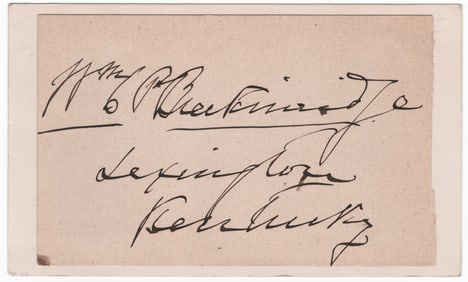 Wm C P Breckinridge
Lexington
Kentucky